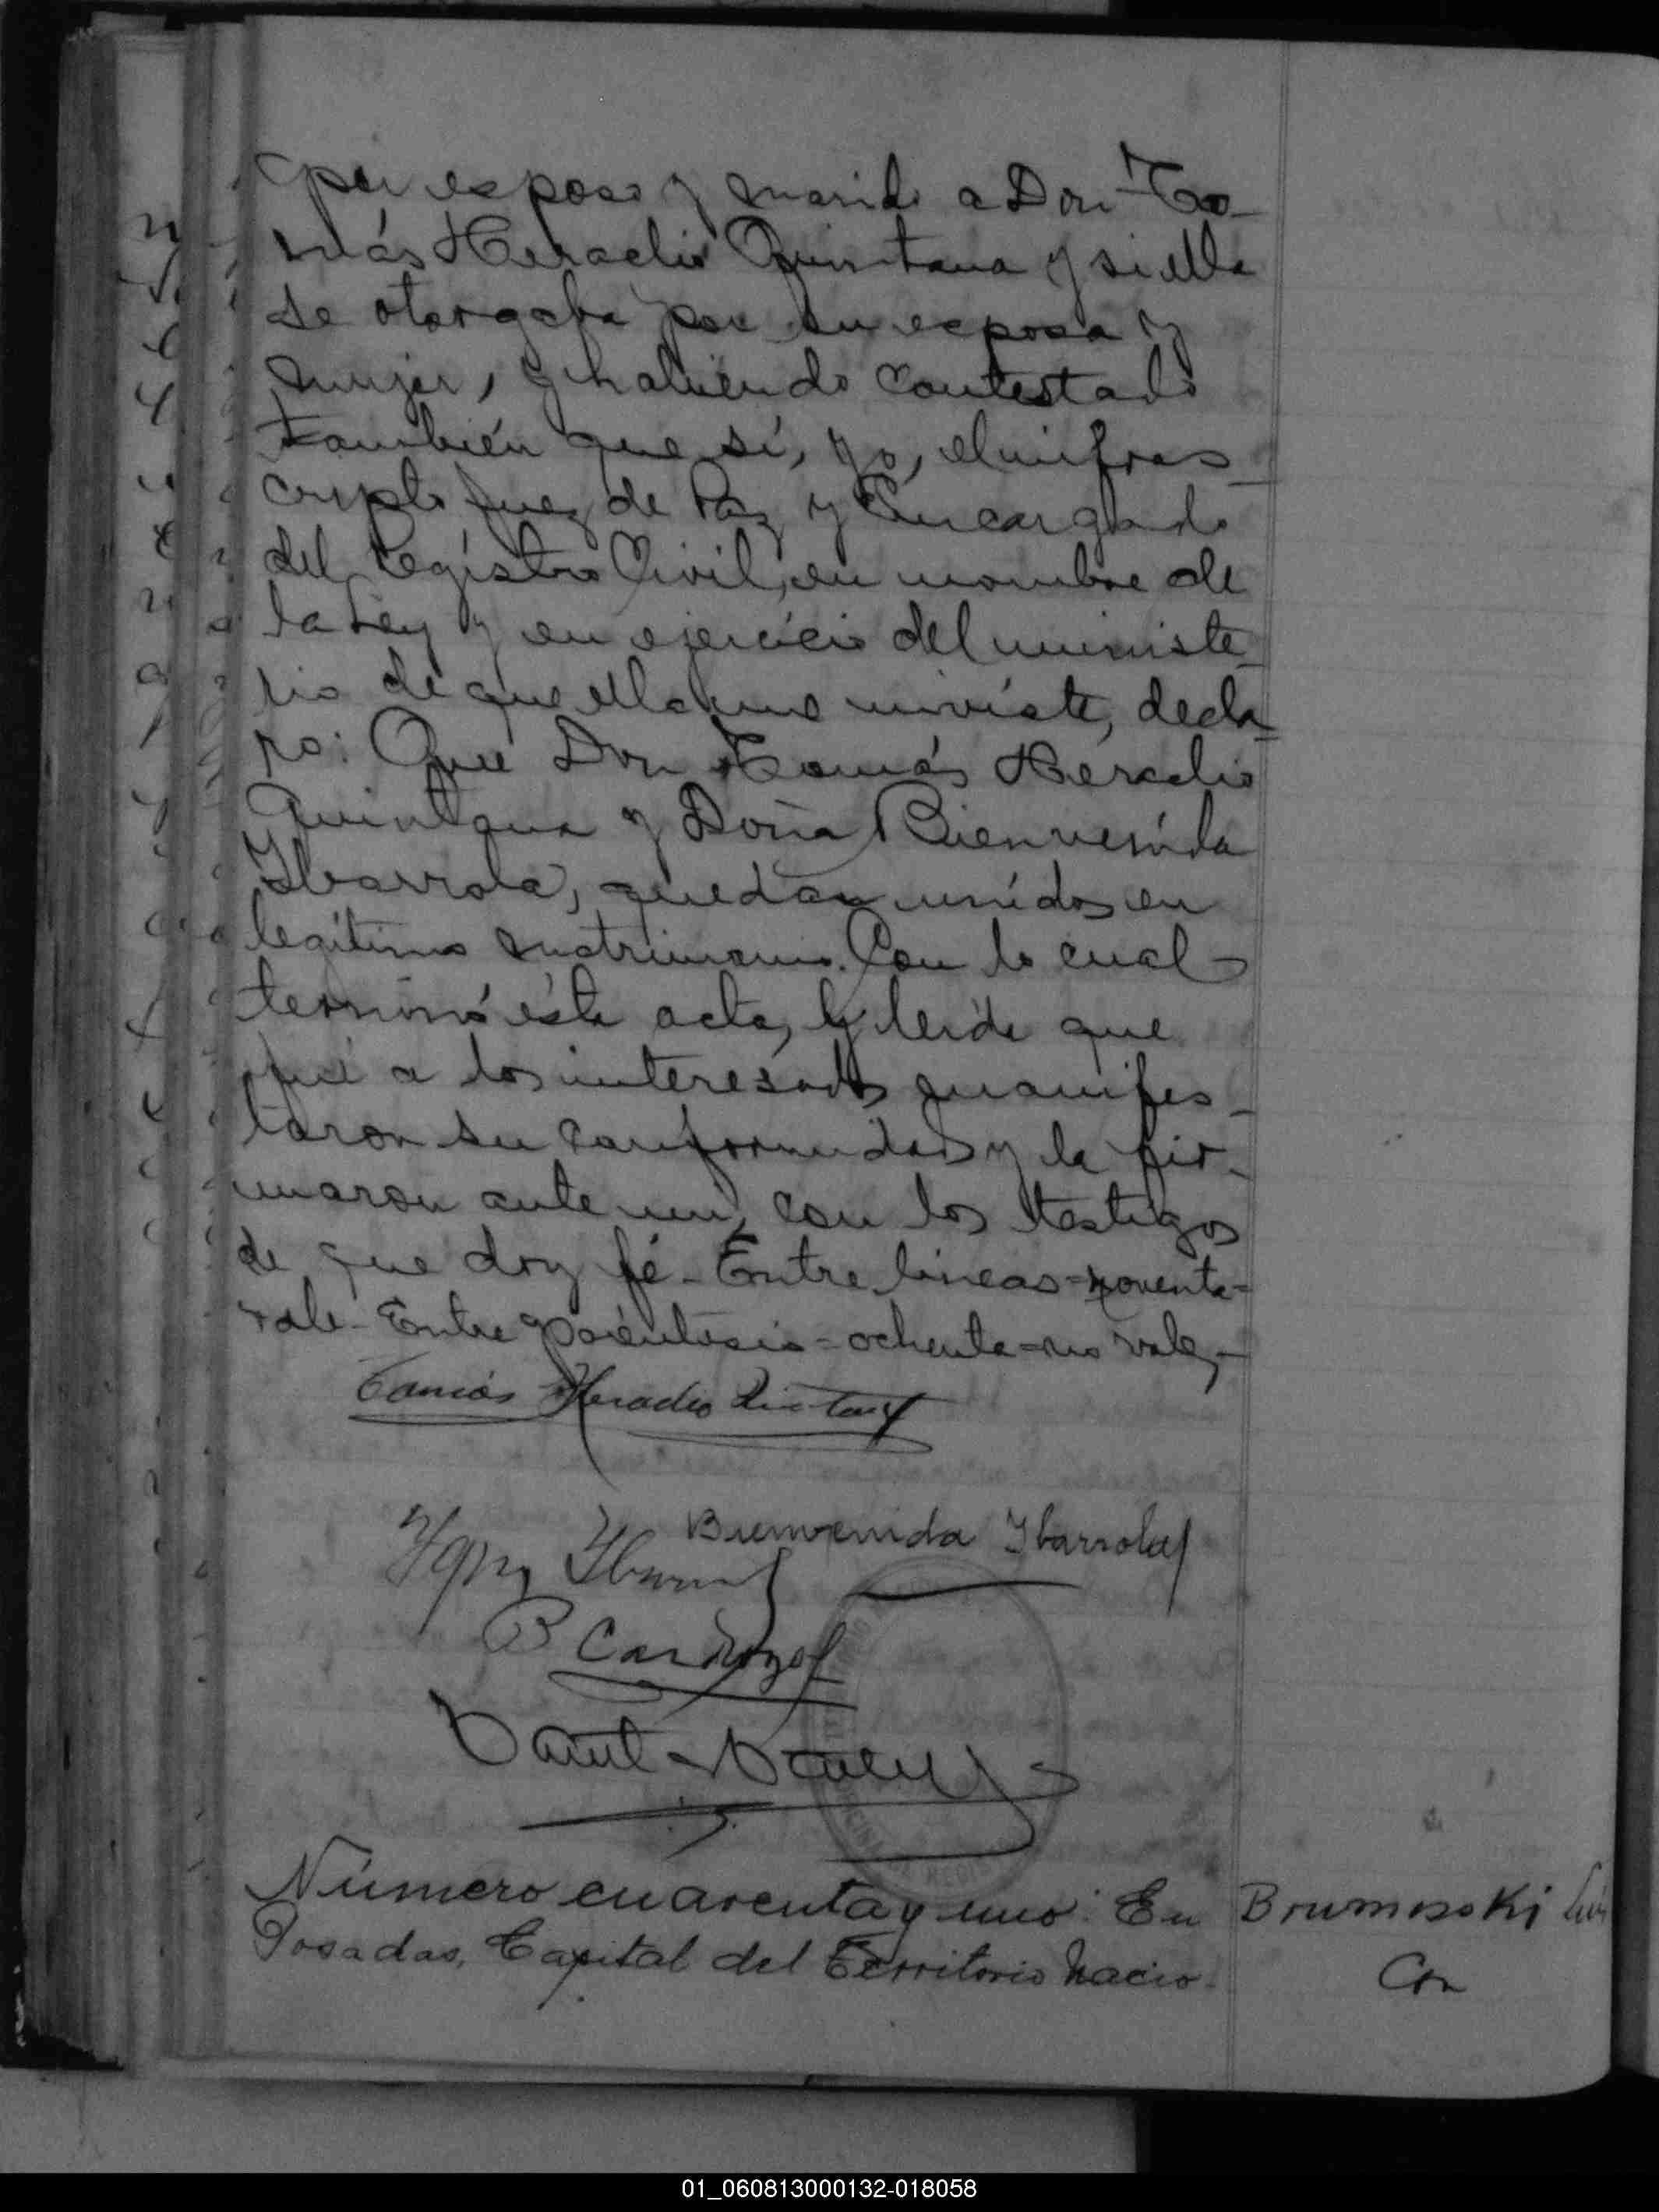 por esposo y marido a Don To-
más Heraclio Quintana y si ella
se otorgaba por su esposa y
mujer, y habiendo contestado
también que sí, yo, el infras-
cripto Juez de Paz y Encargado
del Registro Civil, en nombre de
la Ley y en ejercicio del ministe-
rio de que ella me inviste, decla-
ro: Que Don Tomás Heraclio
Quintana y Doña Bienvenida
Ibarrola, quedan unidos en
legítimo matrimonio. Con lo cual
terminó ésta acta, y leída que
fué a los interesados manifes-
taron su conformidad y la fir-
maron ante mí, con los testigos
de que doy fé - Entre líneas = noventa =
vale - Entre paréntesis = ochenta = no vale, -
Tomás Heraclio Quintana
Bienvenida Ibarrola
B Cardozo
Número cuarenta y uno: En
Brumosski
Posadas, Capital del Territorio Nacio-
Con
01_060813000132-018058